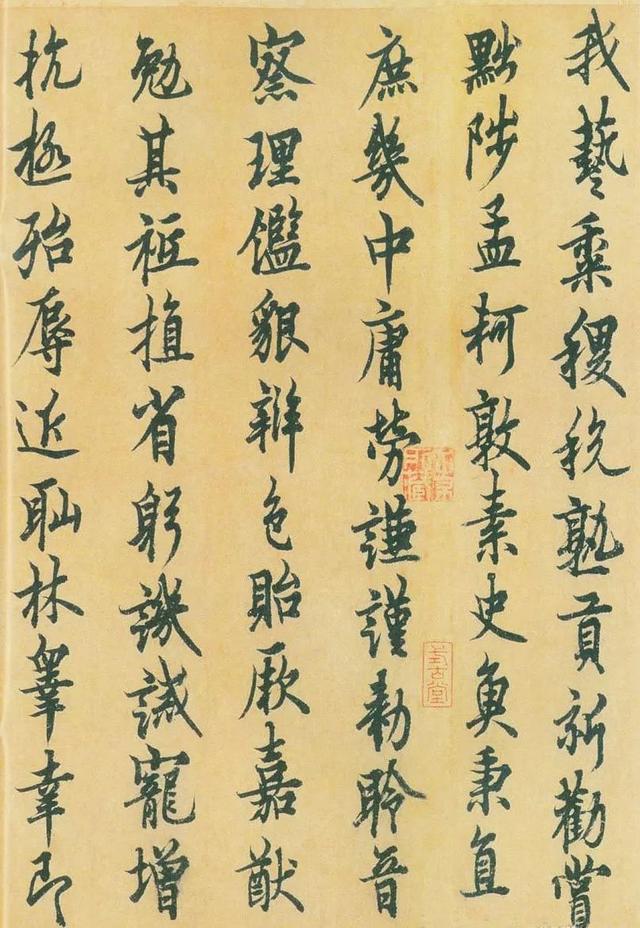 我藝黍稷稅熟貢新勸賞
黜陟孟軻敦素史魚秉直
庶幾中庸勞謙謹勅聆音
察理鑑貌辨色貽厥嘉猷
勉其祗植省躬譏誡寵增
抗極殆辱近耻林皋幸即
式古堂